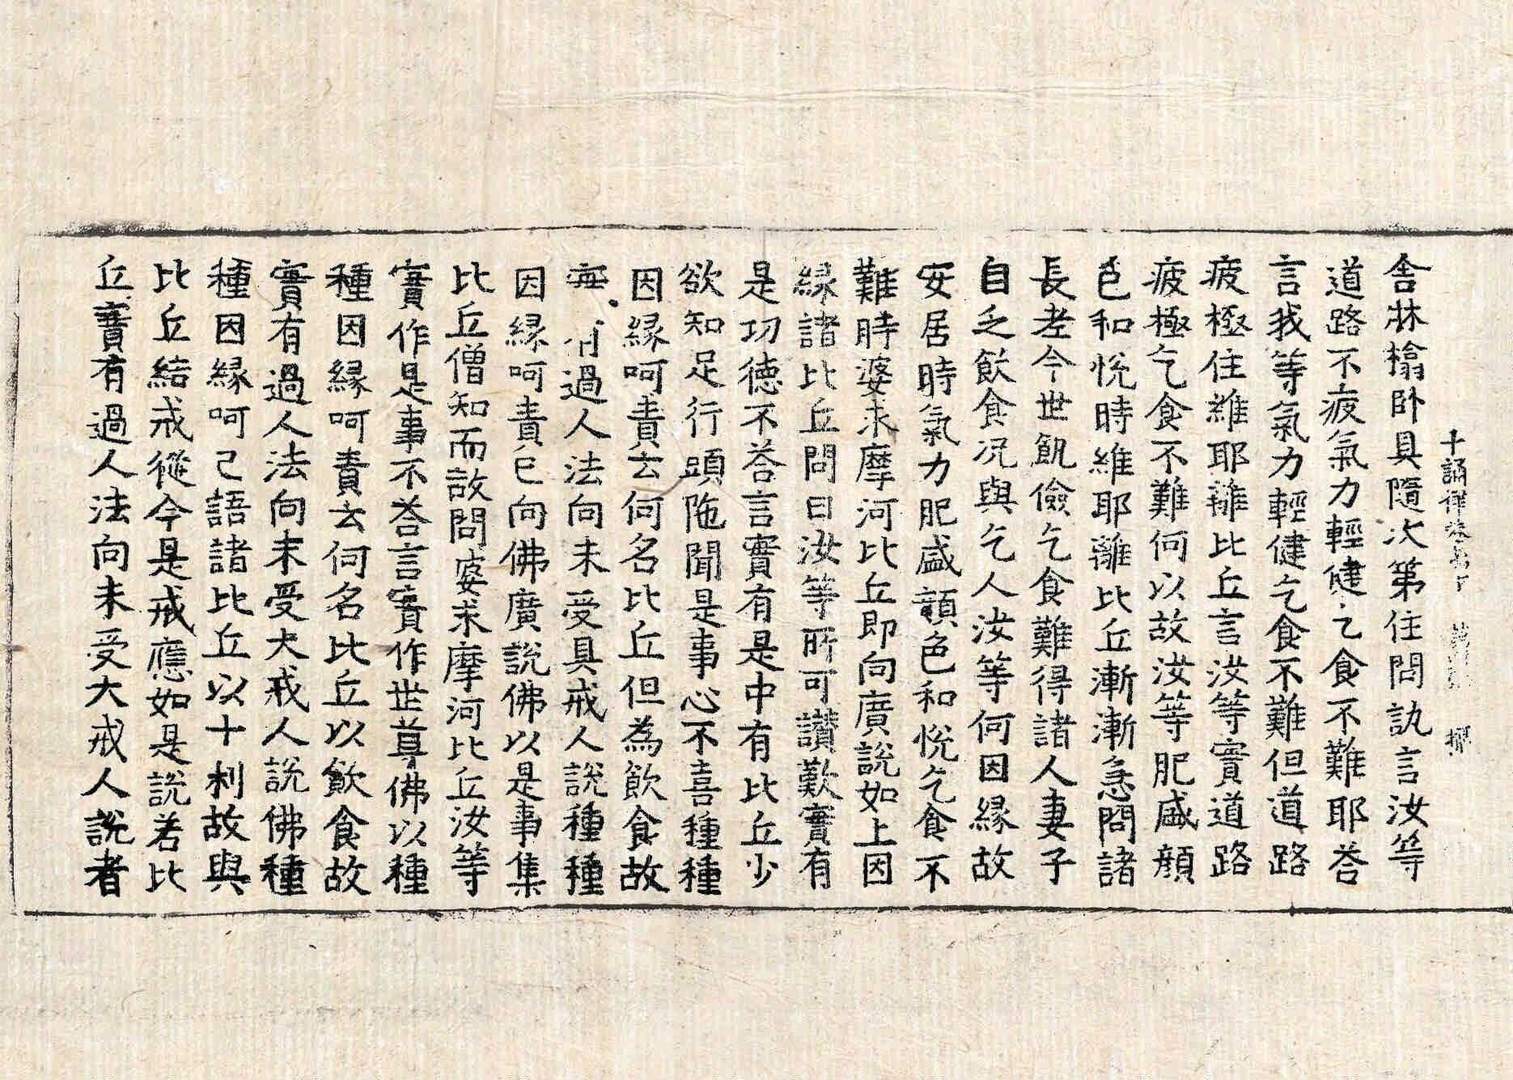 十誦律
舍牀榻卧具隨次第住問訊言汝等
道路不疲氣力輕健乞食不難耶荅
言我等氣力輕健乞食不難但道路
疲極住維耶離比丘言汝等實道路
疲極乞食不難何以故汝等肥盛顏
色和悅時維耶離比丘漸漸急問諸
長老今世飢儉乞食難得諸人妻子
自乏飲食况與乞人汝等何因緣故
安居時氣力肥盛顏色和悅乞食不
難時婆求摩河比丘即向廣說如上因
緣諸比丘問曰汝等所可讃歎實有
是功德不荅言實有是中有比丘少
欲知足行頭陁聞是事心不喜種種
因緣呵責云何名比丘但為飲食故
有過人法向未受具戒人說種種
因緣呵責已向佛廣說佛以是事集
比丘僧知而故問婆求摩河比丘汝等
實作是事不荅言實作世尊佛以種
種因緣呵責云何名比丘以飲食故
實有過人法向未受大戒人說佛種
種因緣呵已語諸比丘以十利故與
比丘結戒從今是戒應如是說若比
丘實有過人法向未受大戒人說者